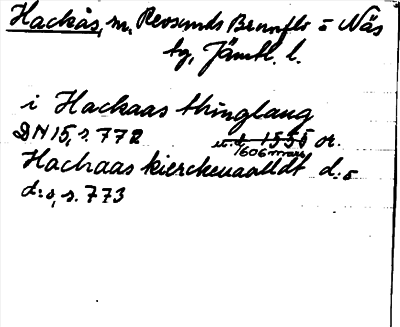 Hackås, sn, Revsunds Brunflo o Näs
tg, Jämtl. l.
i Hackaas thinglaug
DN 15, s. 772 u. d. 1555 or.
1606 mars
Hachaas kierckeuaalldt d:o
d:o, s. 773